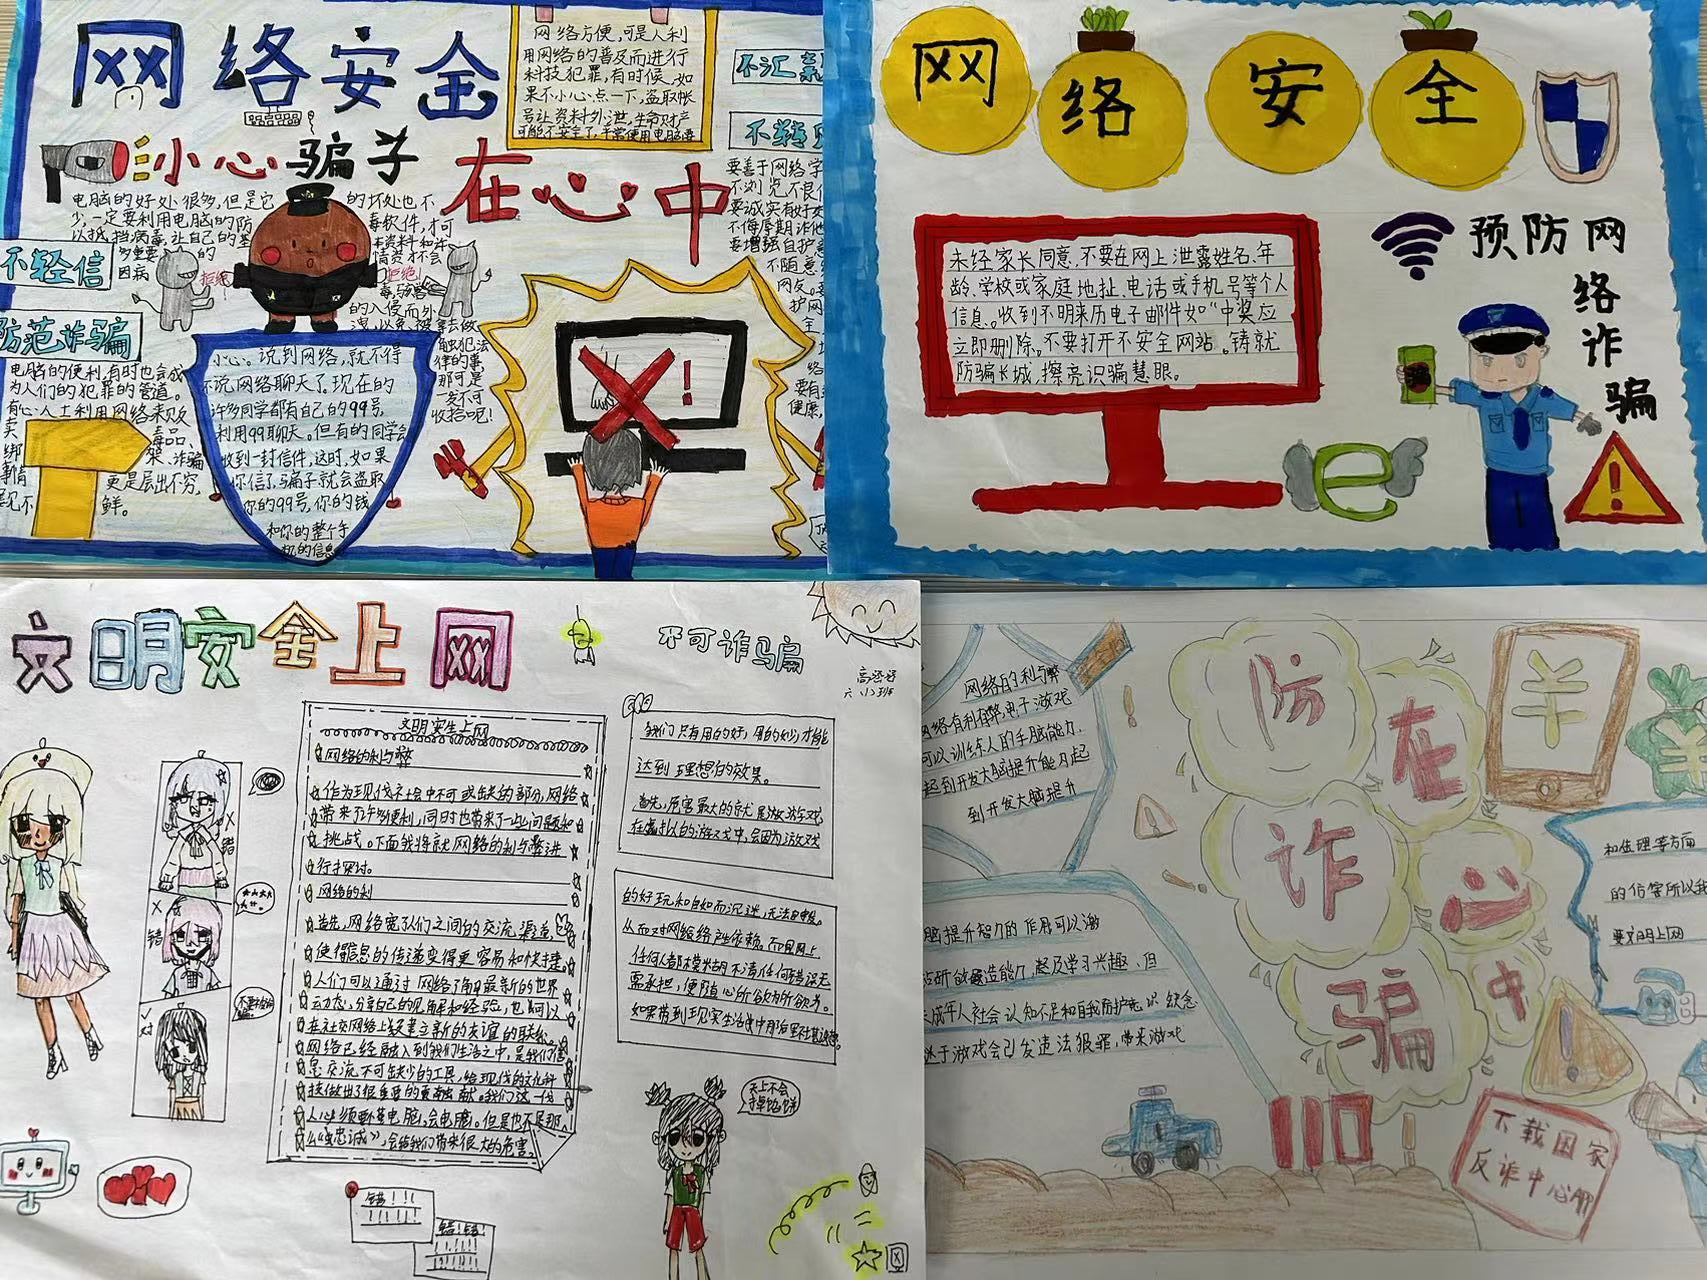 网络安全
小心骗子在心中
网络方便,可是人利
用网络的普及而进行
科技犯罪,有时候,如
果不小心点一下,盗取帐
号让资料外泄,生命财产
可能不安全了,平常使用电脑要
不汇款
不转账
电脑的好处很多,但是它
的坏处也不
少,一定要利用电脑的防
毒软件,才可
以找、挡病毒,让自己的基
本资料和
多重要
的
情资才不会
因病
拒绝!
拒绝!
毒,骇客
的入侵而外
泄,以免被拿去做
触犯法
律的事,
那可是
一发不可
收拾呢!
不轻信
防范诈骗
电脑的便利,有时也会成
为人们的犯罪的管道。
有心人士利用网络来贩
卖
毒品、
绑
架、诈骗
事情
更是层出不穷,
屡见不
鲜。
小心。说到网络,就不得
不说网络聊天了。现在的
许多同学都有自己的99号,
利用99聊天。但有的同学会
收到一封信件,这时,如果
你信了,骗子就会盗取
你的99号,你的钱
和你的整个手
机的信息
要善于网络学
不浏览不良信
要诚实有好交
不侮辱
要增强自护意
不随意
网友。
护网
全
健康,
!
网络安全
预防网
络
诈
骗
未经家长同意,不要在网上泄露姓名、年
龄、学校或家庭地址、电话或手机号等个人
信息。收到不明来历电子邮件如“中奖应
立即删除。不要打开不安全网站。铸就
防骗长城,擦亮识骗慧眼。
e
!
文明安全上网
不可诈骗
六(1)班
网络的利与弊
作为现代社会中不可或缺的部分,网络
带来了许多便利,同时也带来了一些问题和
挑战。下面我将就网络的利与弊进
行探讨。
网络的利
首先,网络宽了人们之间的交流渠道,
使得信息的传递变得更容易和快捷
人们可以通过网络了解最新的世界
动态,分享自己的见解和经验,也可以
在社交网络上建立新的友谊的联系。
网络已经融入到我们生活之中,是我们信
息交流不可缺少的工具,给现代的文化科
技做出了很重要的贡献。我们这一代
人必须要懂电脑,会电脑。但是也不是那
么“忠诚”,会给我们带来很大的危害。
我们只有用的好,用的妙,才能
达到理想的效果。
首先,厉害最大的就是游戏
在虚拟的游戏中,会因为游戏
的好玩和自如而沉迷,无法自拔。
从而对网络产生依赖。而且网上
任何人都模糊不清,任何错误无
需承担,便随心所欲为所欲为。
如果带到现实生活中后果不堪设想。
X
错
X
错
√
对
天上不会
掉馅饼
错!!!
错!错!
防
在
诈
心
骗
中
网络的利与弊
网络有利有弊,电子游戏
可以训练人的手脑能力,
起到开发大脑提升能力起
到开发大脑提升
脑提升智力的作用可以激
钻研的创造能力,起及学习兴趣、但
未成年人社会认知不足和自我防护意识缺念
迷于游戏会引发违法报罪,带来游戏
和生理等方面
的伤害所以我
要文明上网
110!
下载国家
反诈中心APP